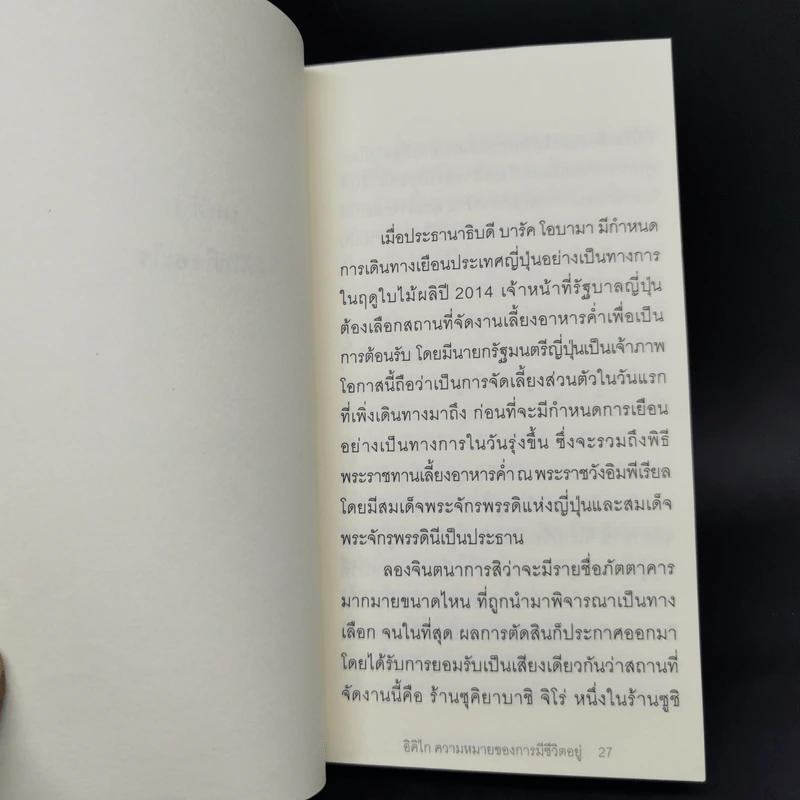 เมื่อประธานาธิบดี บารัค โอบามา มีกำหนด
การเดินทางเยือนประเทศญี่ปุ่นอย่างเป็นทางการ
ในฤดูใบไม้ผลิปี 2014 เจ้าหน้าที่รัฐบาลญี่ปุ่น
ต้องเลือกสถานที่จัดงานเลี้ยงอาหารค่ำเพื่อเป็น
การต้อนรับ โดยมีนายกรัฐมนตรีญี่ปุ่นเป็นเจ้าภาพ
โอกาสนี้ถือว่าเป็นการจัดเลี้ยงส่วนตัวในวันแรก
ที่เพิ่งเดินทางมาถึง ก่อนที่จะมีกำหนดการเยือน
อย่างเป็นทางการในวันรุ่งขึ้น ซึ่งจะรวมถึงพิธี
พระราชทานเลี้ยงอาหารค่ำ ณ พระราชวังอิมพีเรียล
โดยมีสมเด็จพระจักรพรรดิแห่งญี่ปุ่นและสมเด็จ
พระจักรพรรดินีเป็นประธาน
ลองจินตนาการสิว่าจะมีรายชื่อภัตตาคาร
มากมายขนาดไหน ที่ถูกนำมาพิจารณาเป็นทาง
เลือก จนในที่สุด ผลการตัดสินก็ประกาศออกมา
โดยได้รับการยอมรับเป็นเสียงเดียวกันว่าสถานที่
จัดงานนี้คือ ร้านซุคิยาบาชิ จิโร่ หนึ่งในร้านซูชิ
อิคิไก ความหมายของการมีชีวิตอยู่ 27